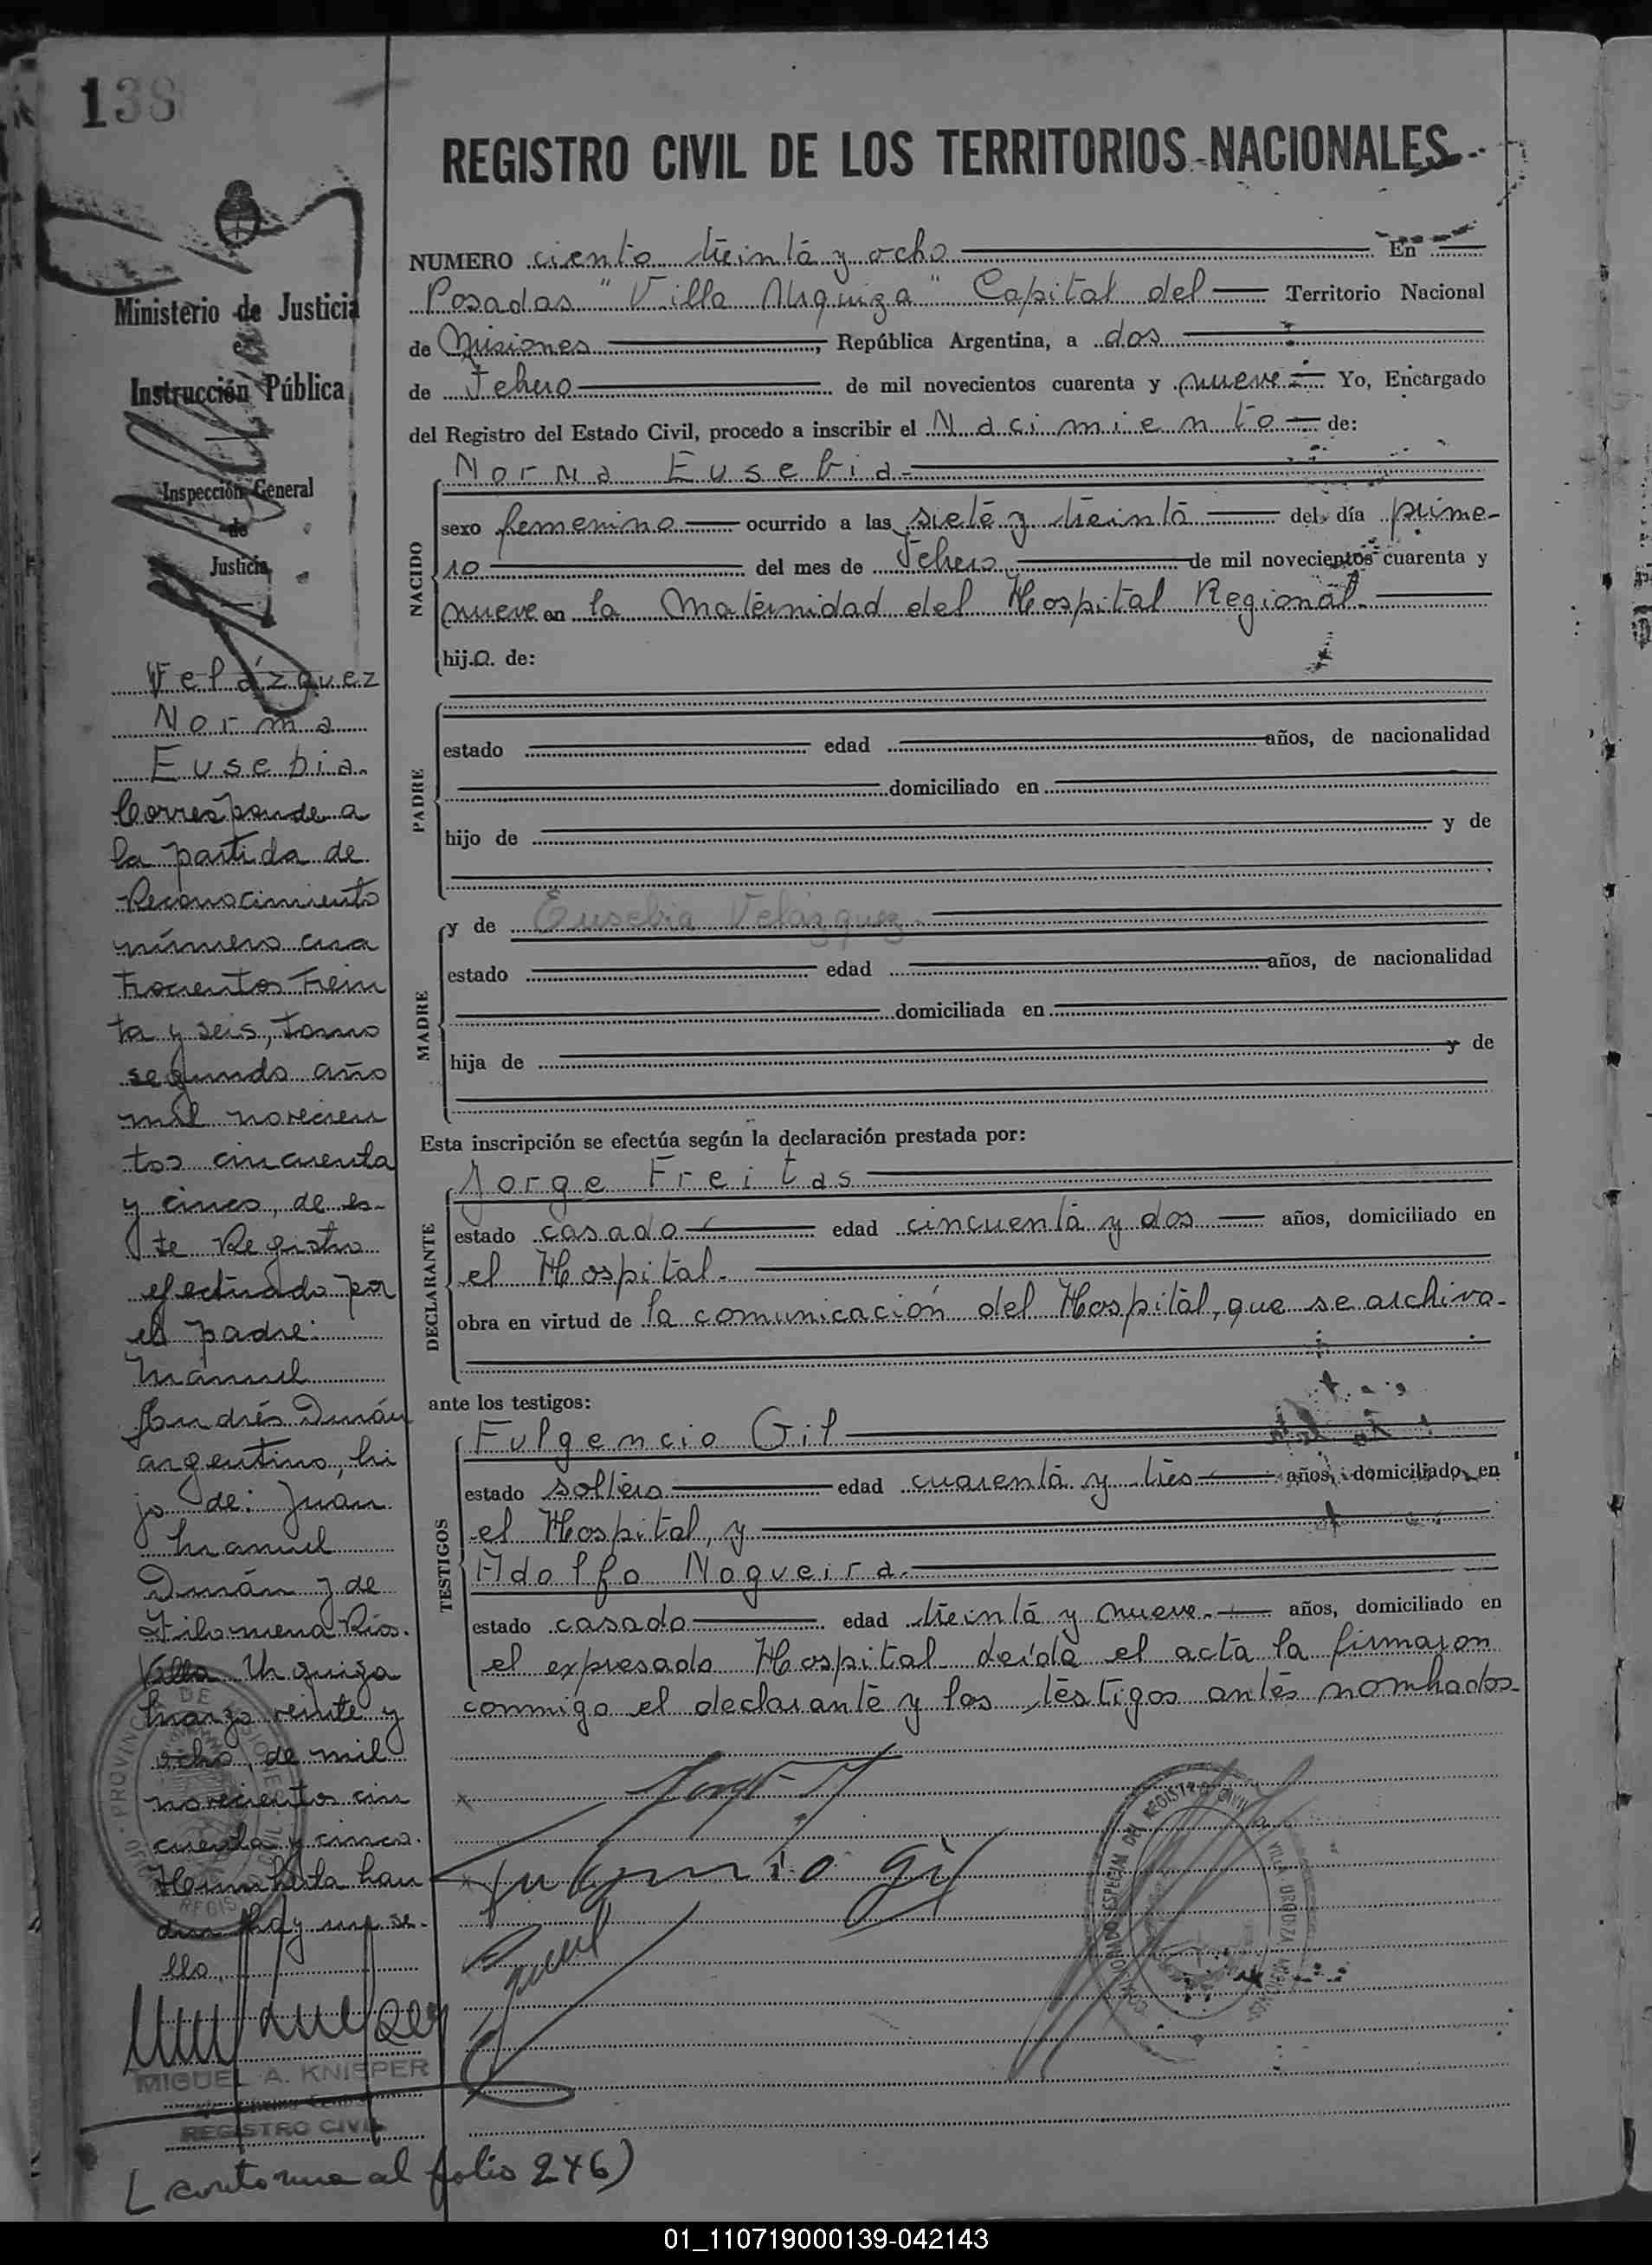 138
REGISTRO CIVIL DE LOS TERRITORIOS NACIONALES
Ministerio de Justicia
e
Instrucción Pública
Inspección General
de
Justicia
Velázquez
Norma
Eusebia.
Corresponde a
la partida de
Reconocimiento
número cua
trocientos trein
ta y seis, tomo
segundo año
mil novecien
tos cincuenta
y cinco, de es-
te Registro
efectuado por
el padre:
Manuel
Andrés Durán
argentino, hi
jo de: Juan
Manuel
Durán y de
Filomena Ríos.
Villa Urquiza
marzo veinte y
ocho, de mil
novecientos cin
cuenta y cinco.
hay un se-
llo.
MIGUEL A. KNISPER
REGISTRO CIVIL
(continua al folio 246)
NUMERO ciento treinta y ocho En
Posadas "Villa Urquiza" Capital del Territorio Nacional
de Misiones, República Argentina, a dos
de Febrero de mil novecientos cuarenta y nueve Yo, Encargado
del Registro del Estado Civil, procedo a inscribir el Nacimiento de:
Norma Eusebia.
NACIDO
sexo femenino ocurrido a las siete y treinta del día prime-
ro del mes de Febrero de mil novecientos cuarenta y
nueve en la Maternidad del Hospital Regional.
hija de:
PADRE
estado edad años, de nacionalidad
domiciliado en
hijo de y de
MADRE
y de Eusebia Velázquez.
estado edad años, de nacionalidad
domiciliada en
hija de y de
Esta inscripción se efectúa según la declaración prestada por:
DECLARANTE
Jorge Freitas
estado casado edad cincuenta y dos años, domiciliado en
el Hospital.
obra en virtud de la comunicación del Hospital, que se archiva.
ante los testigos:
TESTIGOS
Fulgencio Gil
estado soltero edad cuarenta y tres años, domiciliado en
el Hospital, y
Adolfo Nogueira.
estado casado edad treinta y nueve. años, domiciliado en
el expresado Hospital leída el acta la firmaron
conmigo el declarante y los testigos antes nombrados.
Fulgencio Gil
01_110719000139-042143